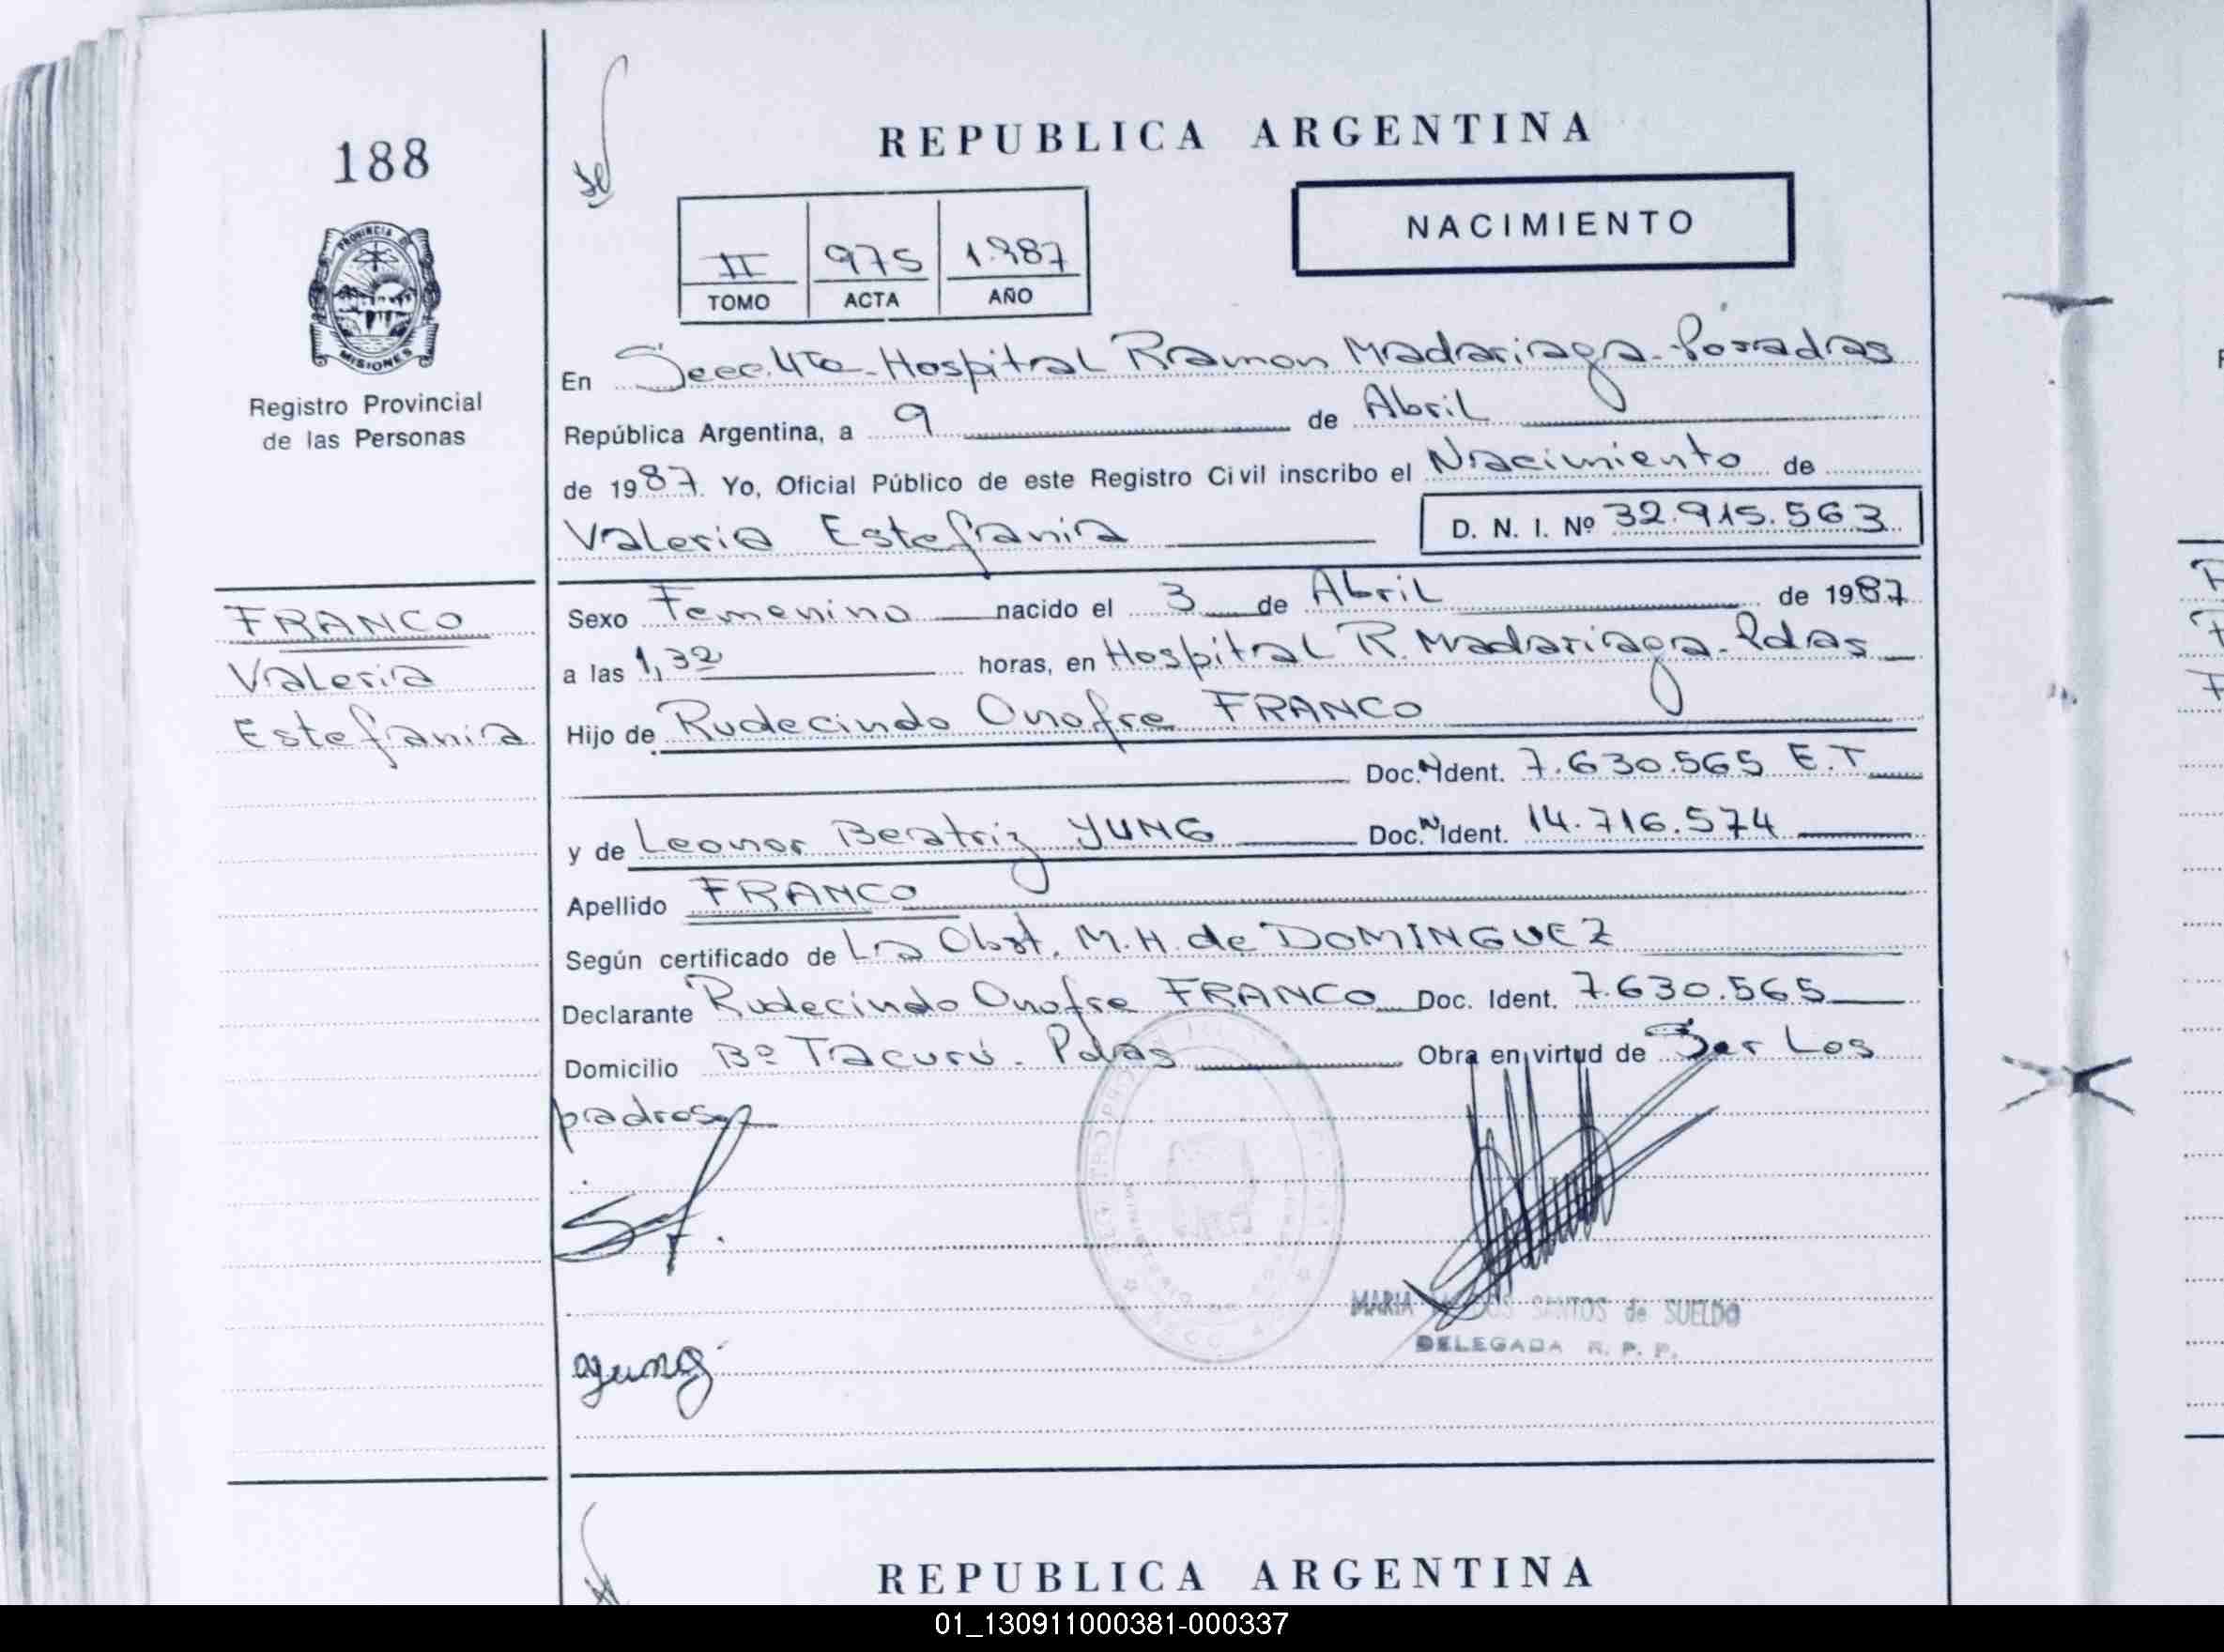 188
PROVINCIA DE
MISIONES
Registro Provincial
de las Personas
REPUBLICA ARGENTINA
NACIMIENTO
II 975 1.987
TOMO ACTA AÑO
En Secc. 4ta - Hospital Ramon Madariaga - Posadas
República Argentina, a 9 de Abril
de 1987. Yo, Oficial Público de este Registro Civil inscribo el Nacimiento de
Valeria Estefania D. N. I. Nº 32.915.563
FRANCO
Valeria
Estefania
Sexo Femenino nacido el 3 de Abril de 1987
a las 1,32 horas, en Hospital R. Madariaga - Pdas
Hijo de Rudecindo Onofre FRANCO
Doc. N Ident. 7.630.565 E.T
y de Leonor Beatriz YUNG Doc. N Ident. 14.716.574
Apellido FRANCO
Según certificado de La Obst. M.H. de DOMINGUEZ
Declarante Rudecindo Onofre FRANCO Doc. Ident. 7.630.565
Domicilio Bº Tacurú - Pdas Obra en virtud de Ser Los
padres
MARIA SANTOS de SUELDO
DELEGADA R. P. P.
yung
REPUBLICA ARGENTINA
01_130911000381-000337